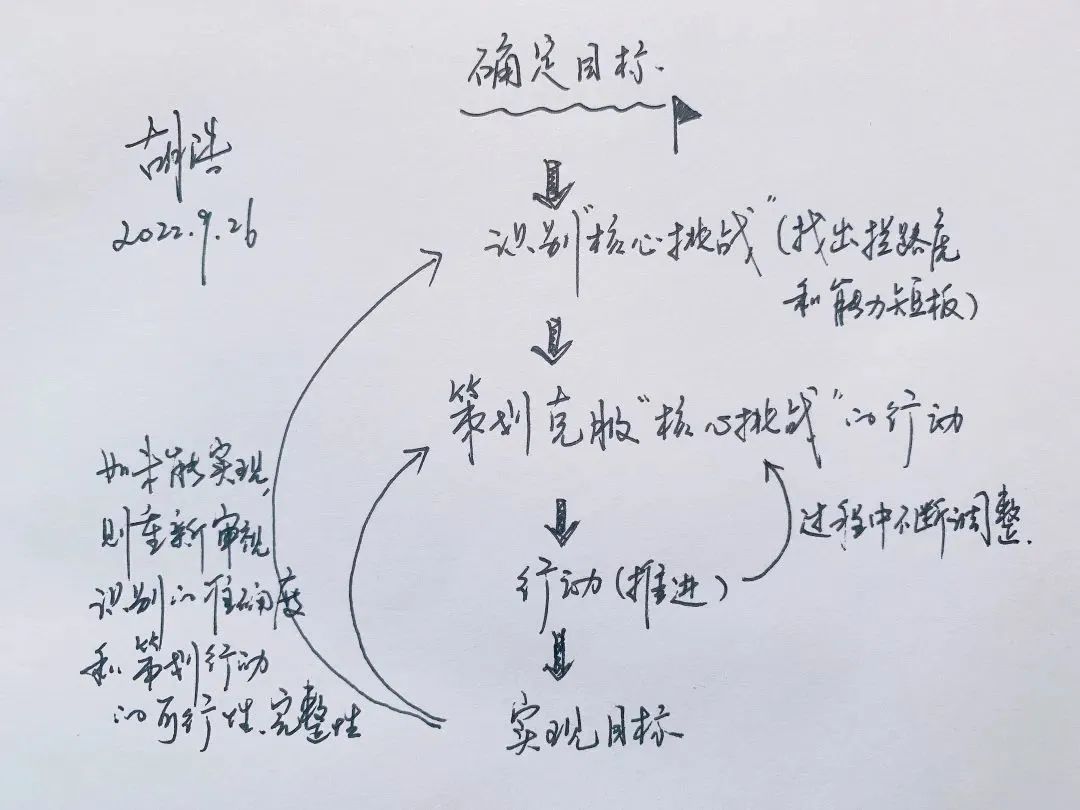 确定目标.
胡浩
2022.9.26
识别"核心挑战"(找出拦路虎
和能力短板)
策划克服"核心挑战"的行动
过程中不断调整.
行动(推进)
实现目标
如未能实现,
则重新审视
识别的准确度
和策划行动
的可行性、完整性